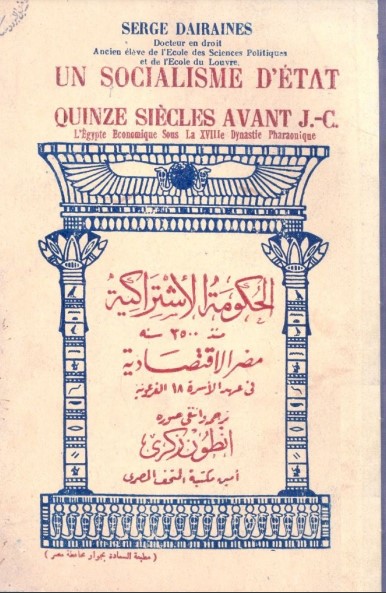 SERGE DAIRAINES
Docteur en droit
Ancien élève de l'Ecole des Sciences Politiques
et de l'Ecole du Louvre.
UN SOCIALISME D'ÉTAT
QUINZE SIÈCLES AVANT J.-C.
L'Égypte Economique Sous La XVIIIe Dynastie Pharaonique
الحكومة الاشتراكية
منذ ٣٥٠٠ سنه
مصر الاقتصادية
فى عهد الأسرة ١٨ الفرعونية
ترجمه وانتقى صوره
انطون زكرى
أمين مكتبة المتحف المصرى
( مطبعة السعادة بجوار محافظة مصر )